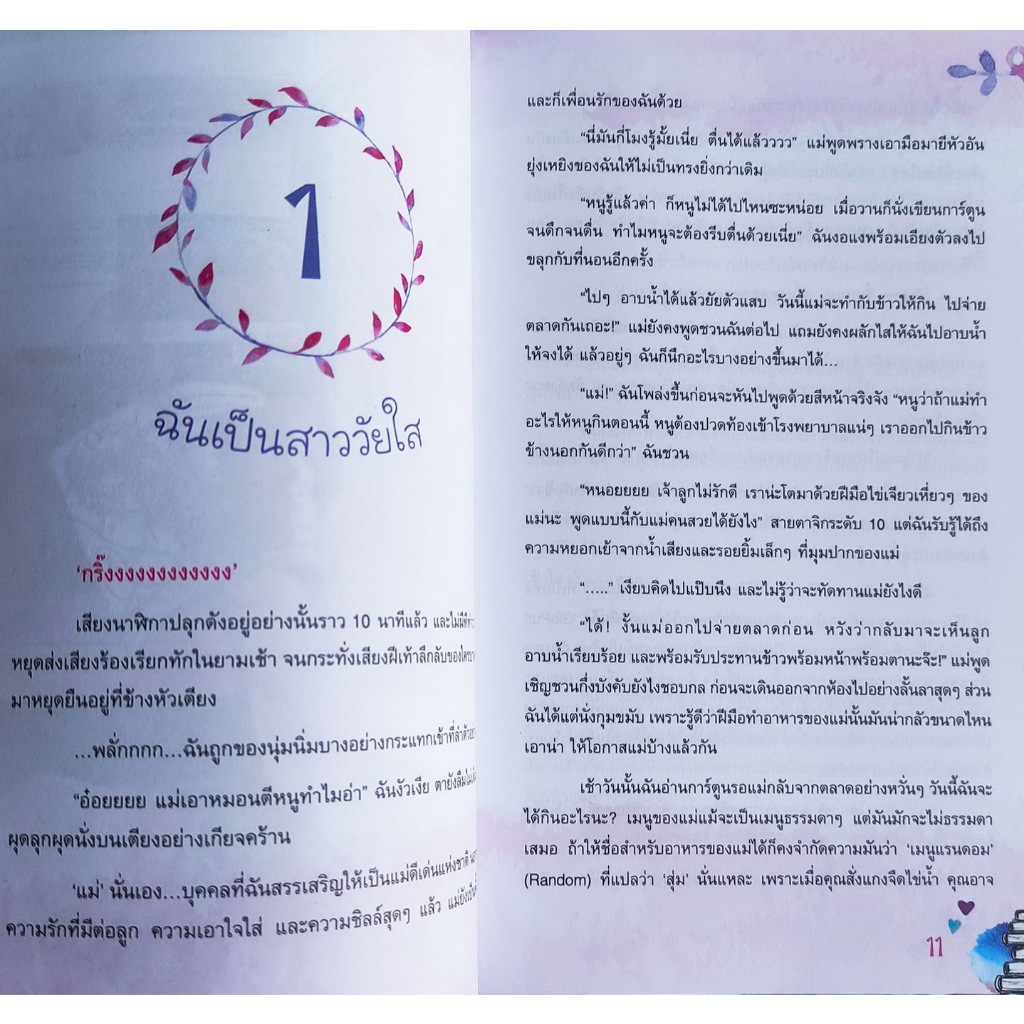 1
ฉันเป็นสาววัยใส
'กริ๊งงงงงงงงงงงงง'
เสียงนาฬิกาปลุกดังอยู่อย่างนั้นราว 10 นาทีแล้ว และไม่มีที
หยุดส่งเสียงร้องเรียกทักในยามเช้า จนกระทั่งเสียงฝีเท้าลึกลับของใคร
มาหยุดยืนอยู่ที่ข้างหัวเตียง
...พลั่กกกก...ฉันถูกของนุ่มนิ่มบางอย่างกระแทกเข้าที่ลำตัว
"อ๋อยยยย แม่เอาหมอนตีหนูทำไมอ่า" ฉันงัวเงีย ตายังลืม
ผุดลุกผุดนั่งบนเตียงอย่างเกียจคร้าน
'แม่' นั่นเอง...บุคคลที่ฉันสรรเสริญให้เป็นแม่ดีเด่นแห่งชาติ
ความรักที่มีต่อลูก ความเอาใจใส่ และความชิลล์สุดๆ แล้ว แม่ยัง
และก็เพื่อนรักของฉันด้วย
"นี่มันกี่โมงรู้มั้ยเนี่ย ตื่นได้แล้วววว" แม่พูดพรางเอามือมายีหัวอัน
ยุ่งเหยิงของฉันให้ไม่เป็นทรงยิ่งกว่าเดิม
"หนูรู้แล้วค่า ก็หนูไม่ได้ไปไหนซะหน่อย เมื่อวานก็นั่งเขียนการ์ตูน
จนดึกจนดื่น ทำไมหนูจะต้องรีบตื่นด้วยเนี่ย" ฉันงอแงพร้อมเอียงตัวลงไป
ขลุกกับที่นอนอีกครั้ง
"ไปๆ อาบน้ำได้แล้วยัยตัวแสบ วันนี้แม่จะทำกับข้าวให้กิน ไปจ่าย
ตลาดกันเถอะ!" แม่ยังคงพูดชวนฉันต่อไป แถมยังคงผลักไสให้ฉันไปอาบน้ำ
ให้จงได้ แล้วอยู่ๆ ฉันก็นึกอะไรบางอย่างขึ้นมาได้...
"แม่!" ฉันโพล่งขึ้นก่อนจะหันไปพูดด้วยสีหน้าจริงจัง "หนูว่าถ้าแม่ทำ
อะไรให้หนูกินตอนนี้ หนูต้องปวดท้องเข้าโรงพยาบาลแน่ๆ เราออกไปกินข้าว
ข้างนอกกันดีกว่า" ฉันชวน
"หนอยยยย เจ้าลูกไม่รักดี เราน่ะโตมาด้วยฝีมือไข่เจียวเหี่ยวๆ ของ
แม่นะ พูดแบบนี้กับแม่คนสวยได้ยังไง" สายตาจิกระดับ 10 แต่ฉันรับรู้ได้ถึง
ความหยอกเย้าจากน้ำเสียงและรอยยิ้มเล็กๆ ที่มุมปากของแม่
"....." เงียบคิดไปแป๊บนึง และไม่รู้ว่าจะทัดทานแม่ยังไงดี
"ได้! งั้นแม่ออกไปจ่ายตลาดก่อน หวังว่ากลับมาจะเห็นลูก
อาบน้ำเรียบร้อย และพร้อมรับประทานข้าวพร้อมหน้าพร้อมตานะจ๊ะ!" แม่พูด
เชิญชวนกึ่งบังคับยังไงชอบกล ก่อนจะเดินออกจากห้องไปอย่างลั้นลาสุดๆ ส่วน
ฉันได้แต่นั่งกุมขมับ เพราะรู้ดีว่าฝีมือทำอาหารของแม่นั้นมันน่ากลัวขนาดไหน
เอาน่า ให้โอกาสแม่บ้างแล้วกัน
เช้าวันนั้นฉันอ่านการ์ตูนรอแม่กลับจากตลาดอย่างหวั่นๆ วันนี้ฉันจะ
ได้กินอะไรนะ? เมนูของแม่แม้จะเป็นเมนูธรรมดาๆ แต่มันมักจะไม่ธรรมดา
เสมอ ถ้าให้ชื่อสำหรับอาหารของแม่ได้ก็คงจำกัดความมันว่า 'เมนูแรนดอม'
(Random) ที่แปลว่า 'สุ่ม' นั่นแหละ เพราะเมื่อคุณสั่งแกงจืดไข่น้ำ คุณอาจ
11